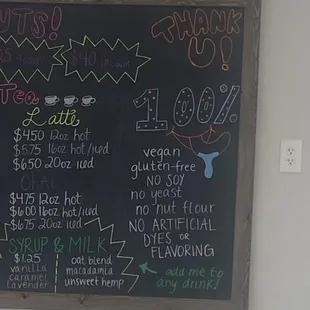 UTS!
THANK
U!
Tea
Latte
$4.50 12oz hot
$5.75 16oz hot/iced
$6.50 20oz iced
Chai
$4.75 12oz hot
$6.00 16oz hot/iced
$6.75 20oz iced
SYRUP & MILK
$1.25
vanilla
caramel
lavender
oat blend
macadamia
unsweet hemp
100%
vegan
gluten-free
NO SOY
no yeast
no nut flour
NO ARTIFICIAL
DYES or
FLAVORING
add me to
any drink!